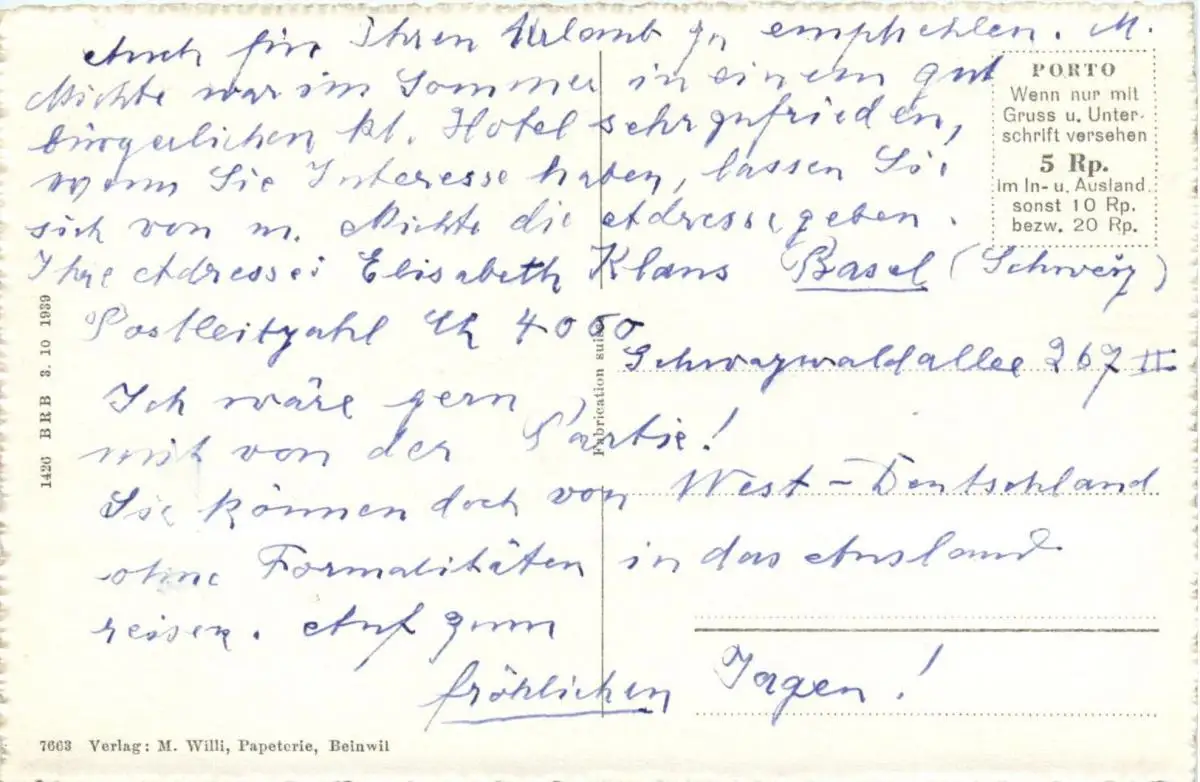 Auch für Ihren Urlaub zu empfehlen. M.
Nichte war im Sommer in einem gut
bürgerlichen kl. Hotel sehr zufrieden,
wenn Sie Interesse haben, lassen Sie
sich von m. Nichte die Adresse geben.
Ihre Adresse: Elisabeth Klaus Basel (Schweiz)
Postleitzahl Ch 4000
Schwarzwaldallee 267 II
Ich wäre gern
mit von der Partie!
Sie können doch von West-Deutschland
ohne Formalitäten in das Ausland
reisen. Auf zum
fröhlichen Jagen!
PORTO
Wenn nur mit
Gruss u. Unter-
schrift versehen
5 Rp.
im In- u. Ausland
sonst 10 Rp.
bezw. 20 Rp.
1426 BRB 3. 10 1939
Fabrication suisse
7663 Verlag: M. Willi, Papeterie, Beinwil